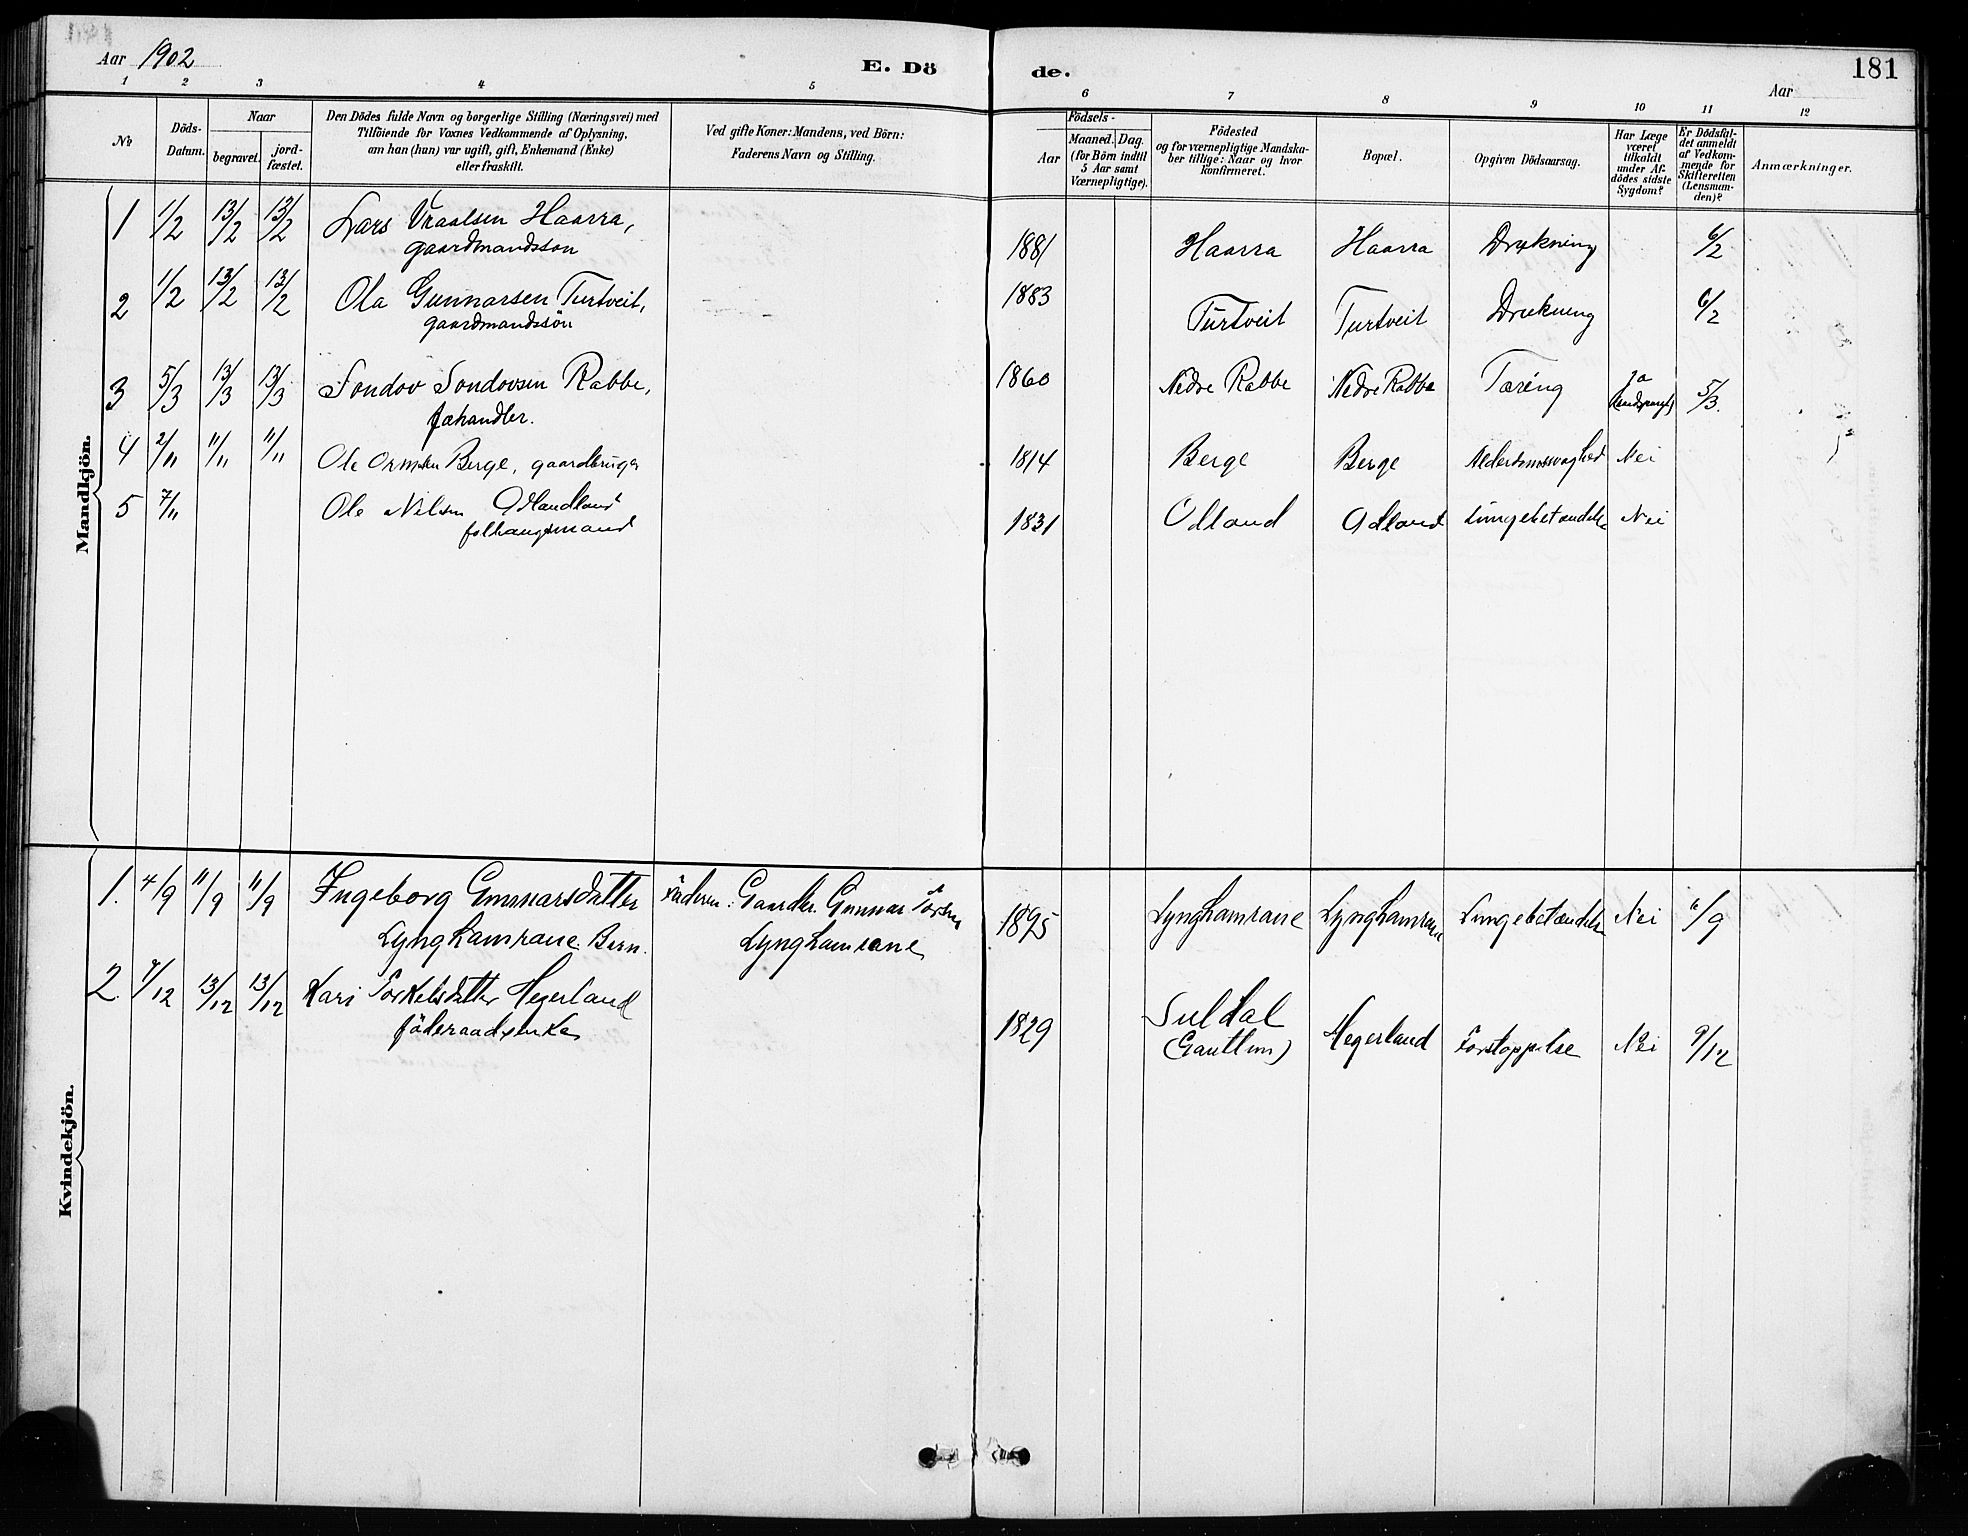 Aar 1902
E. Dö
de.
181
Aar
1 2 3 4 5 6 7 8 9 10 11 12
No
Döds-Datum.
Naar
begravet.
jord-fæstet.
Den Dödes fulde Navn og borgerlige Stilling (Næringsvei) med
Tilföiende for Voxnes Vedkommende af Oplysning,
om han (hun) var ugift, gift, Enkemand (Enke)
eller fraskilt.
Ved gifte Koner: Mandens, ved Börn:
Faderens Navn og Stilling.
Födsels-
Aar
Maaned. Dag.
(for Börn indtil
5 Aar samt
Værnepligtige).
Födested
og for værnepligtige Mandska-
ber tillige: Naar og hvor
konfirmeret.
Bopæl.
Opgiven Dödsaarsag.
Har Læge
været
tilkaldt
under Af-
dödes sidste
Sygdom?
Er Dödsfal-
det anmeldt
af Vedkom-
mende for
Skifteretten
(Lensman-
den)?
Anmærkninger.
Mandkjön.
1 1/2 13/2 13/2 Lars Vraalsen Haarra, 1881 Haarra Haarra Drukning 6/2
gaardmandsson
2 1/2 13/2 13/2 Ola Gunnarsen Turtveit, 1883 Turtveit Turtveit Drukning 6/2
gaardmandssön
3 5/3 13/3 13/3 Sondov Sondovsen Rabbe, 1860 Nedre Rabbe Nedre Rabbe Tæring Ja 5/3.
fæhandler.
4 2/11 11/11 11/11 Ole Ormsen Berge, gaardbruger 1814 Berge Berge Alderdomssvaghed Nei
5 7/11 Ole Nilsen 1831 Odland Odland Lungebetændelse Nei
Kvindekjön.
1. 4/9 11/9 11/9 Ingeborg Gunnarsdatter Faderen: Gaardbr. Gunnar 1895 Lynghamrane Lynghamrane Lungebetændelse Nei 6/9
Lynghamrane. Barn. Lynghamrane
2. 7/12 13/12 13/12 Kari Torkelsdatter Hegerland 1829 Suldal Hegerland Forstoppelse Nei 9/12
föderaadsenke (Gautlun)